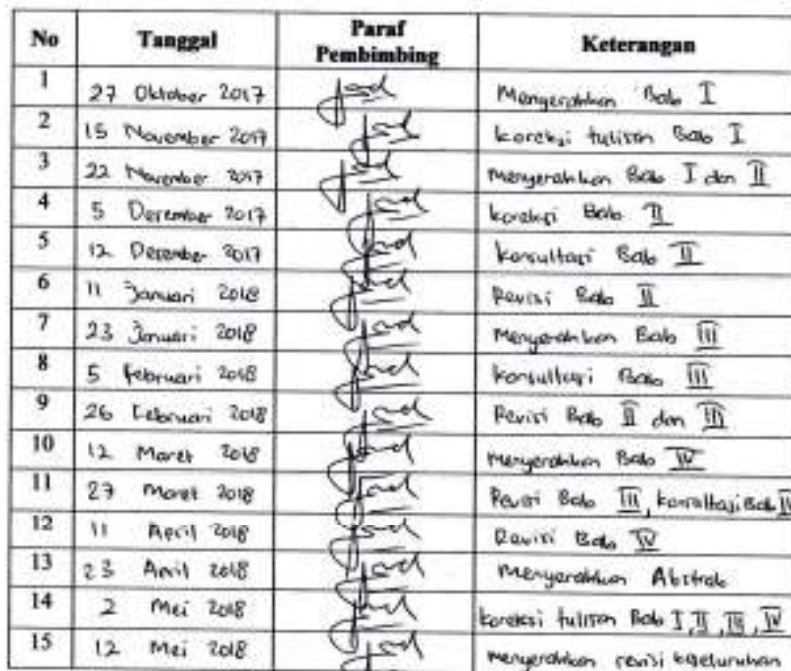 No Tanggal Paraf Pembimbing Keterangan
1 27 Oktober 2017 Mengerahkan Bab I
2 15 November 2017 koreksi tulisan Bab I
3 22 November 2017 Menyerahkan Bab I dan II
4 5 Desember 2017 koreksi Bab II
5 12 Desember 2017 konsultasi Bab II
6 11 Januari 2018 Revisi Bab II
7 23 Januari 2018 Menyerahkan Bab III
8 5 Februari 2018 konsultasi Bab III
9 26 Februari 2018 Revisi Bab II dan III
10 12 Maret 2018 Menyerahkan Bab IV
11 27 Maret 2018 Revisi Bab III, konsultasi Bab IV
12 11 April 2018 Revisi Bab IV
13 23 April 2018 Menyerahkan Abstrak
14 2 Mei 2018 koreksi tulisan Bab I, II, III, IV
15 12 Mei 2018 menyerahkan revisi keseluruhan